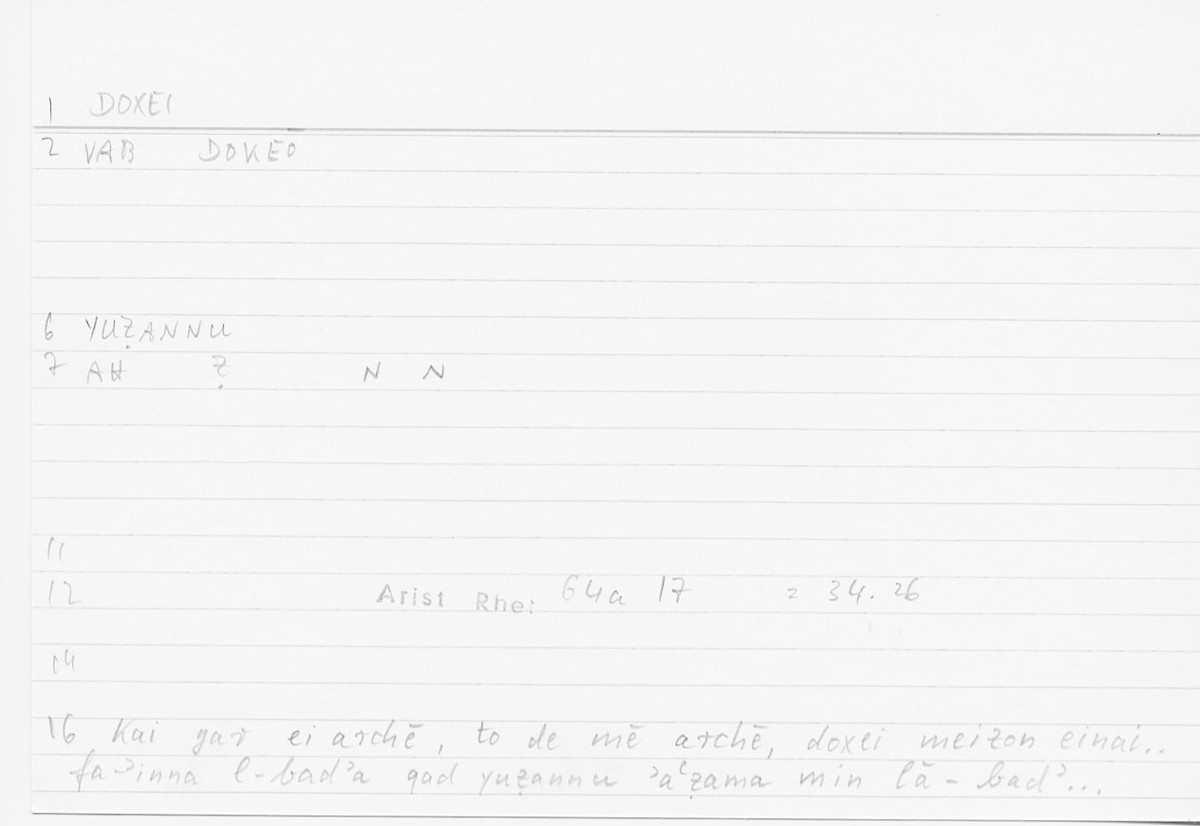 1 DOXEI
2 VAB DOKEO
6 YUẒANNU
7 AH Ẓ N N
11
12 Arist Rhet 64a 17 = 34. 26
14
16 Kai gar ei archē, to de mē archē, doxei meizon einai..
fa-ʾinna l-badʾa qad yuẓannu ʾaʿẓama min lā-badʾ...